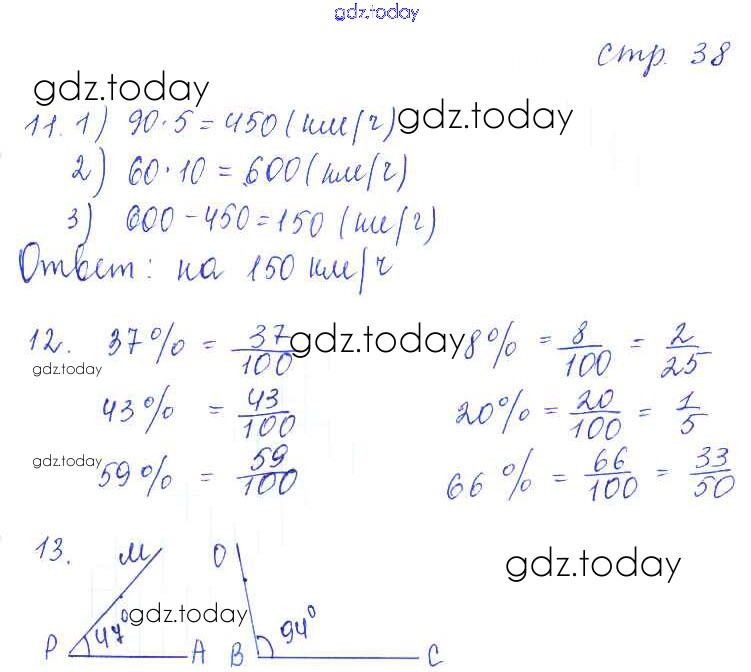 gdz.today
стр. 38
gdz.today
11. 1) 90·5=450(км/ч) gdz.today
2) 60·10=600(км/ч)
3) 600-450=150(км/ч)
Ответ: на 150 км/ч
12. 37% = 37/100 gdz.today 8% = 8/100 = 2/25
gdz.today
43% = 43/100 20% = 20/100 = 1/5
gdz.today
59% = 59/100 66% = 66/100 = 33/50
13. М О gdz.today
47° gdz.today 94°
Р А В С